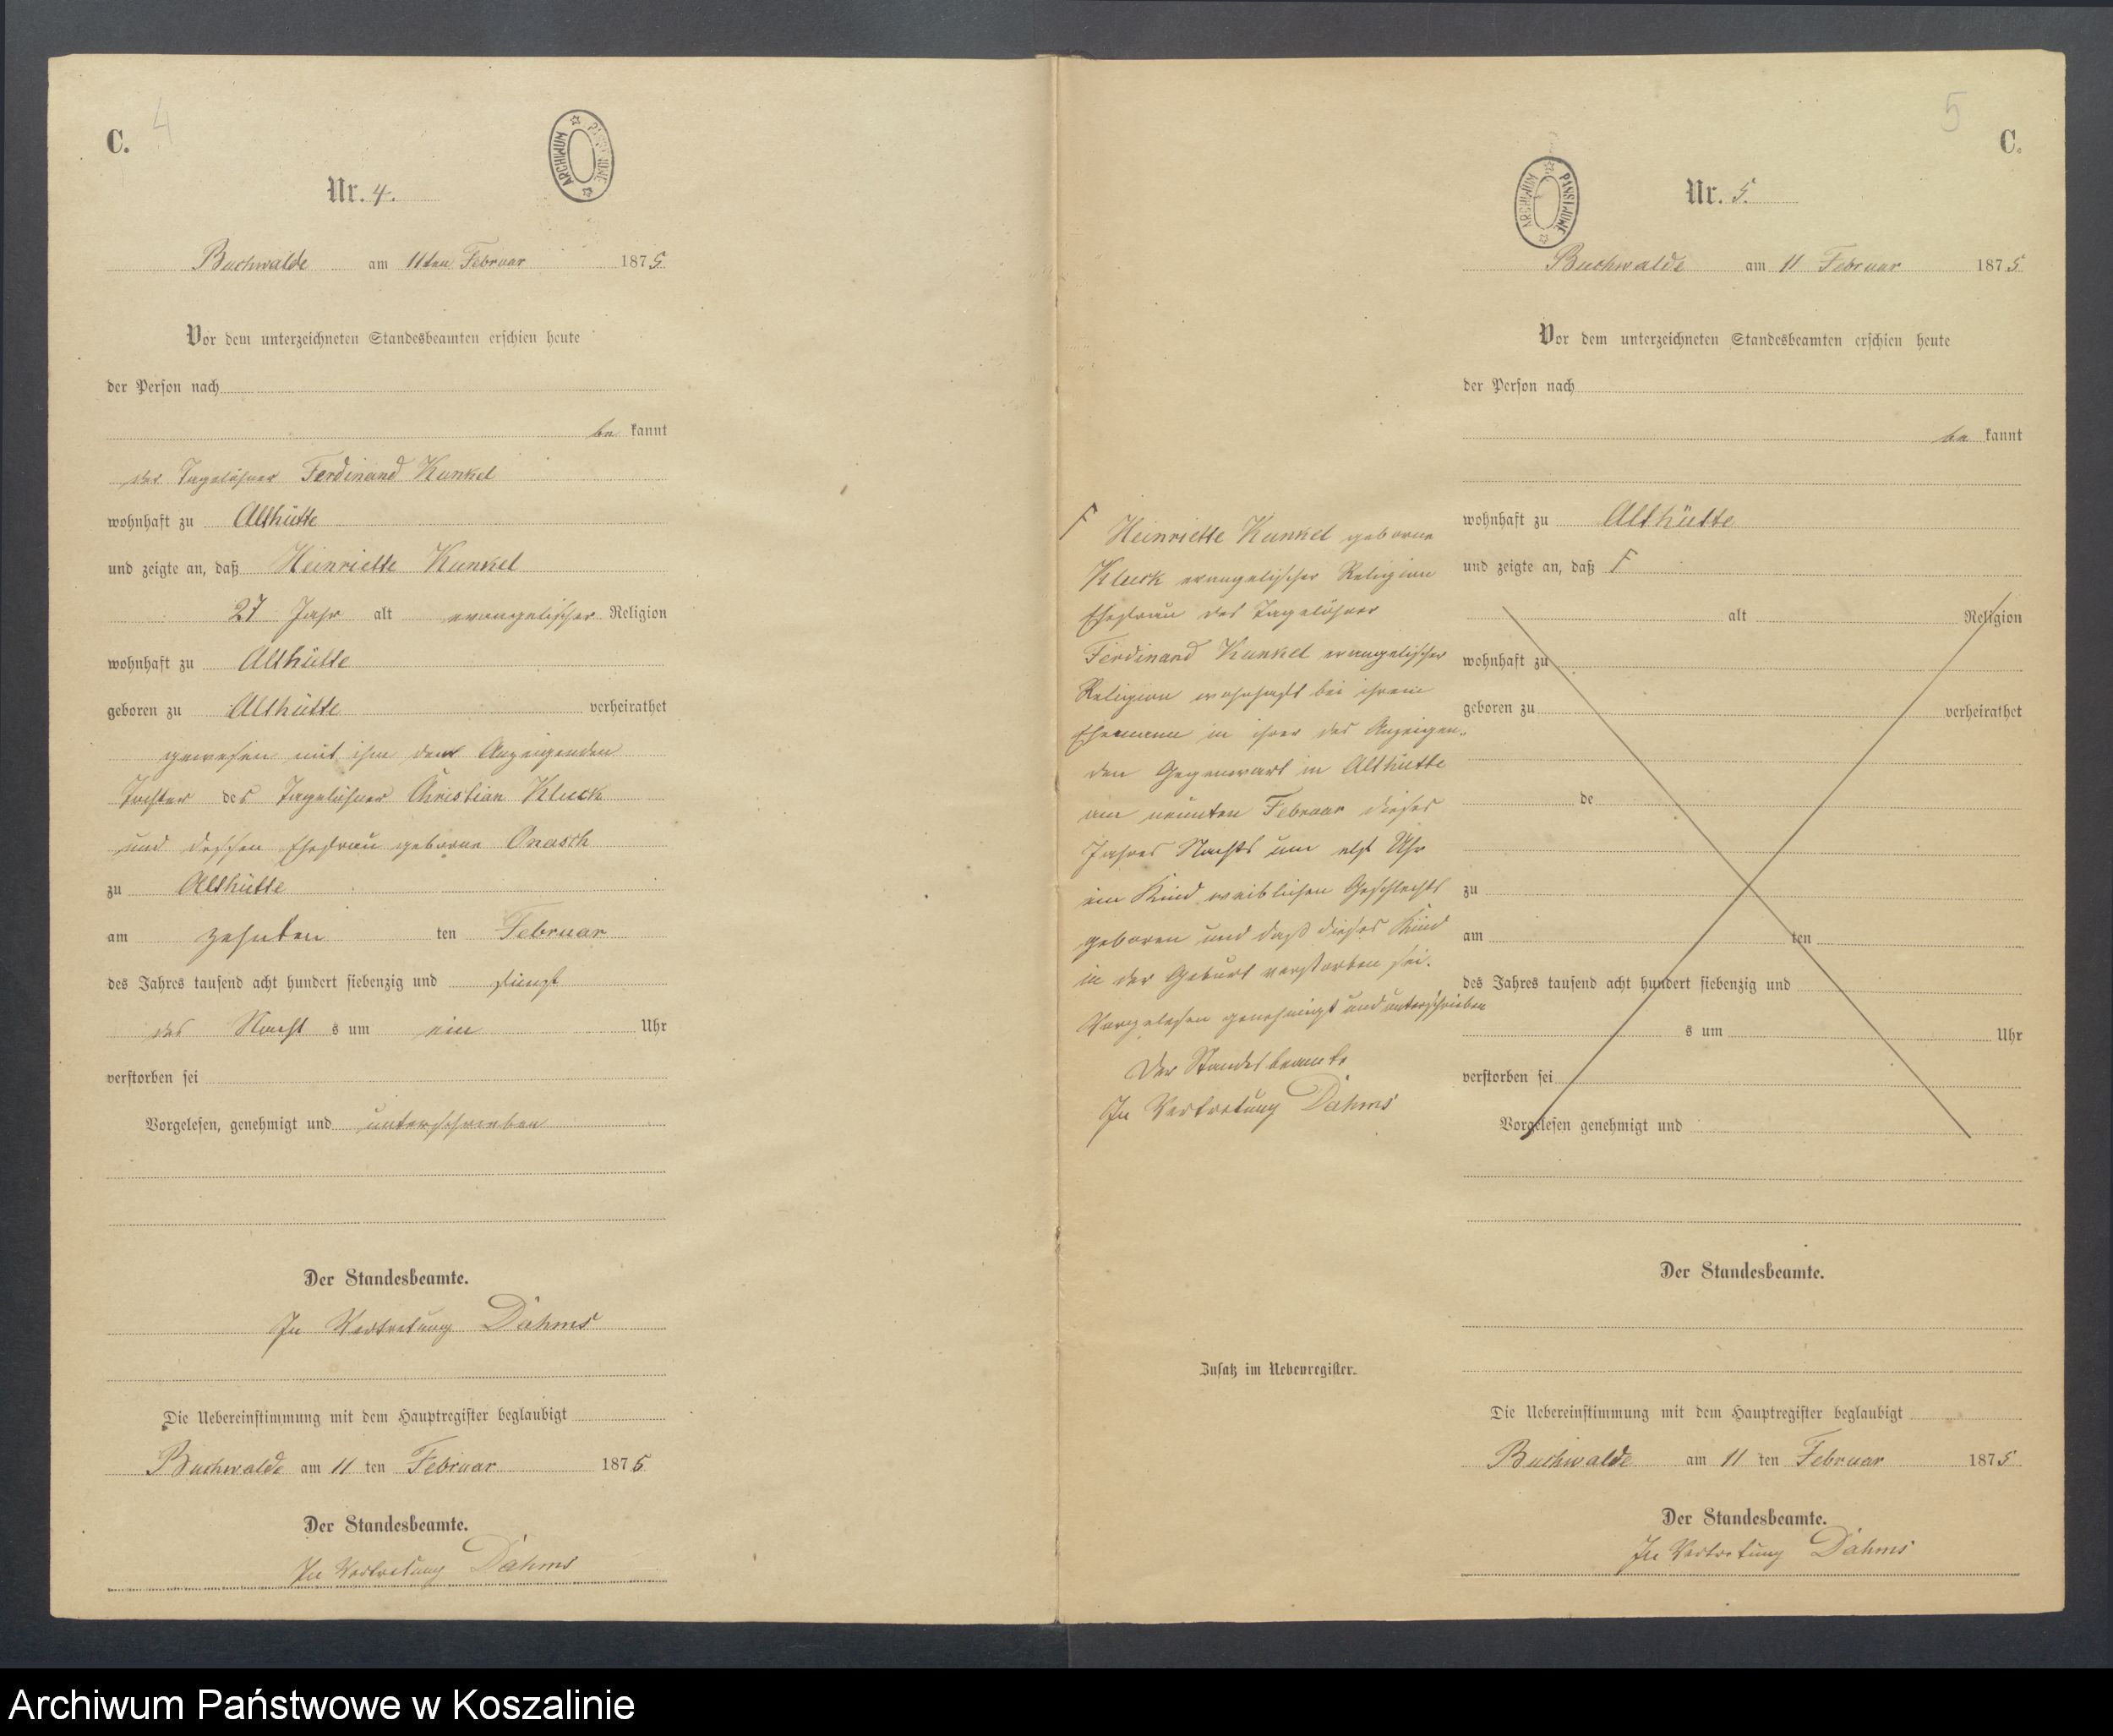 C. 4
ARCHIWUM PAŃSTWOWE
Nr. 4.
Buchwalde am 11ten Februar 1875
Vor dem unterzeichneten Standesbeamten erschien heute
der Person nach
be kannt
der Tagelöhner Ferdinand Kunkel
wohnhaft zu Althütte
und zeigte an, daß Heinriette Kunkel
27 Jahr alt evangelischer Religion
wohnhaft zu Althütte
geboren zu Althütte verheirathet
gewesen mit ihm dem Anzeigenden
Tochter des Tagelöhner Christian Kluck
und dessen Ehefrau geborne Onasch
zu Althütte
am zehnten ten Februar
des Jahres tausend acht hundert siebenzig und fünf
des Nacht s um ein Uhr
verstorben sei
Vorgelesen, genehmigt und unterschrieben
Der Standesbeamte.
In Vertretung Dahms
Die Uebereinstimmung mit dem Hauptregister beglaubigt
Buchwalde am 11 ten Februar 1875
Der Standesbeamte.
In Vertretung Dahms
5
C.
ARCHIWUM PAŃSTWOWE
Nr. 5.
Buchwalde am 11 Februar 1875
Vor dem unterzeichneten Standesbeamten erschien heute
der Person nach
be kannt
wohnhaft zu Althütte
und zeigte an, daß F
alt Religion
wohnhaft zu
geboren zu verheirathet
de
zu
am ten
des Jahres tausend acht hundert siebenzig und
s um Uhr
verstorben sei
Vorgelesen genehmigt und
F Heinriette Kunkel geborne
Kluck evangelischer Religion
Ehefrau des Tagelöhner
Ferdinand Kunkel evangelischer
Religion wohnhaft bei ihrem
Ehemann in ihrer des Anzeigen„
den Gegenwart in Althütte
am neunten Februar dieses
Jahres Nachts um elf Uhr
ein Kind weiblichen Geschlechts
geboren und daß dieses Kind
in der Geburt verstorben sei.
Vorgelesen genehmigt und unterschrieben
Der Standesbeamte
In Vertretung Dahms
Der Standesbeamte.
Zusatz im Nebenregister.
Die Uebereinstimmung mit dem Hauptregister beglaubigt
Buchwalde am 11 ten Februar 1875
Der Standesbeamte.
In Vertretung Dahms
Archiwum Państwowe w Koszalinie